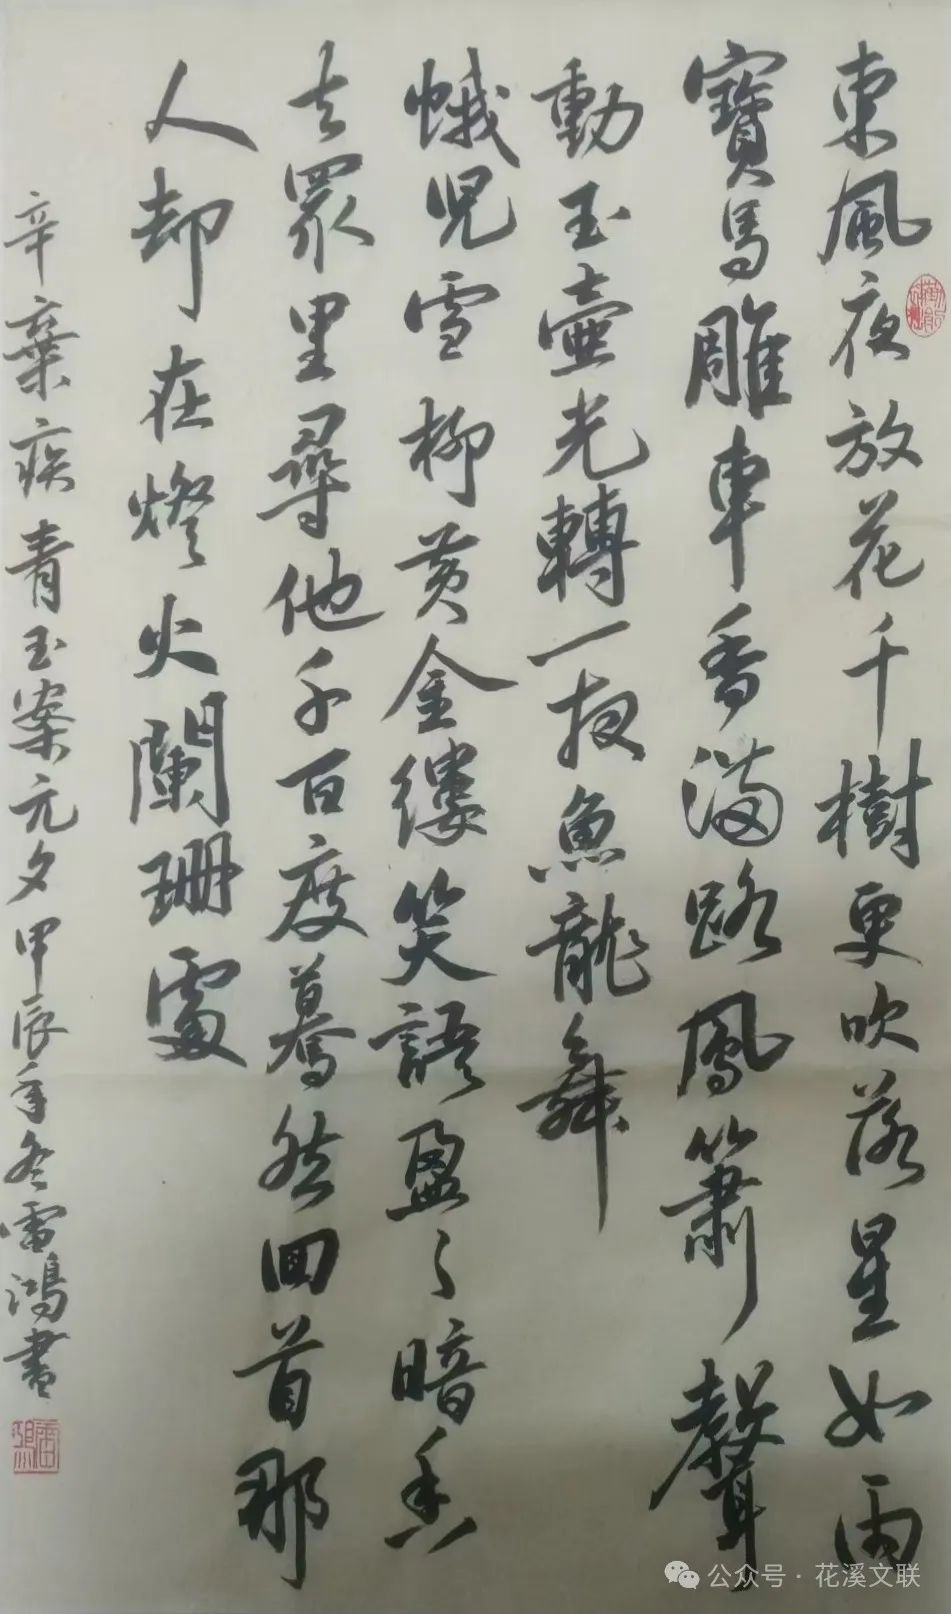 東風夜放花千樹更吹落星如雨
寶馬雕車香滿路鳳簫聲
動玉壺光轉一夜魚龍舞
蛾児雪柳黄金縷笑語盈〻暗香
去眾里尋他千百度驀然回首那
人却在燈火闌珊處
辛棄疾青玉案元夕甲辰年冬雷鴻書
公众号·花溪文联